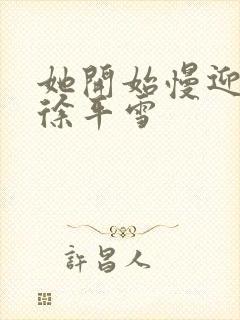 她開始慢迎
徐平雪
許昌人